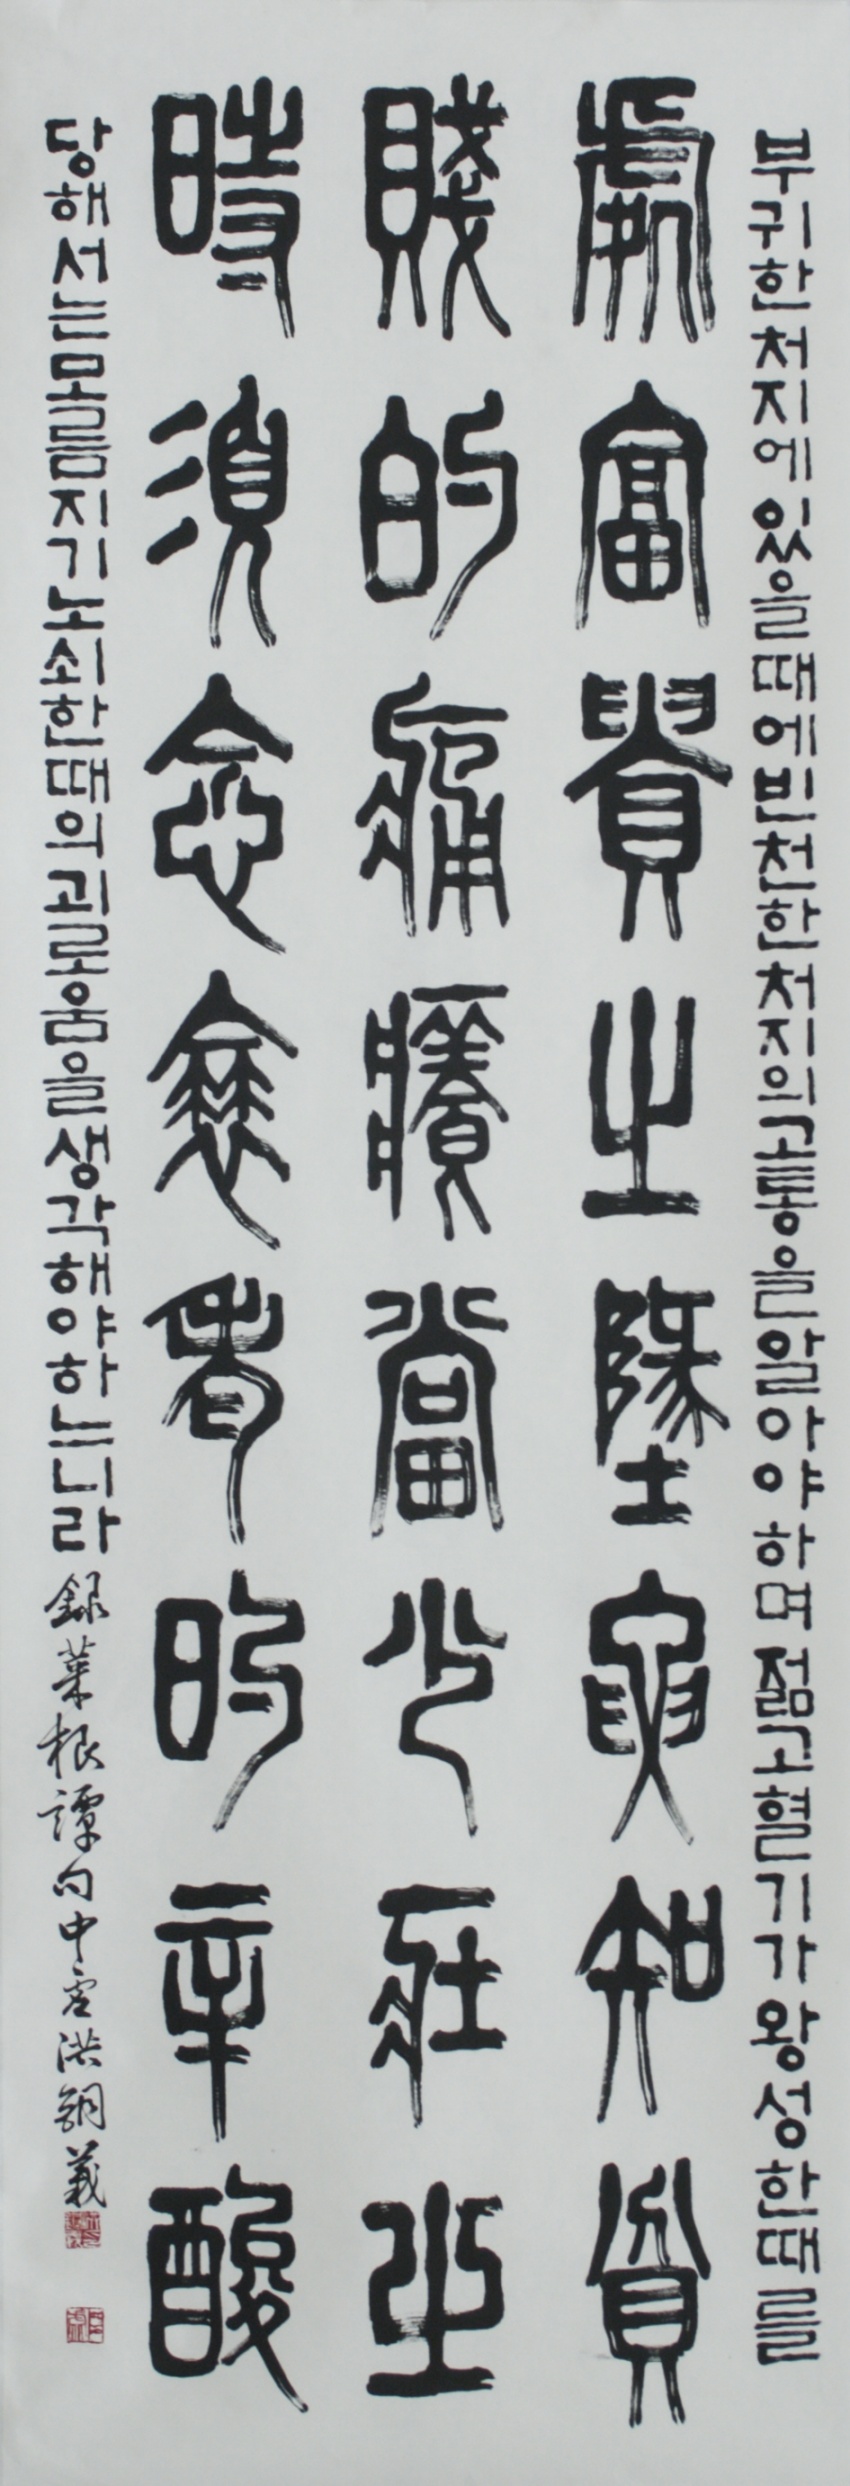 부귀한처지에있을때에빈천한처지의고통을알아야하며젊고혈기가왕성한때를
處富貴之地要知貧
賤的痛癢當少壯之
時須念衰老的辛酸
당해서는모름지기노쇠한때의괴로움을생각해야하느니라 錄菜根譚句中宮洪錮義